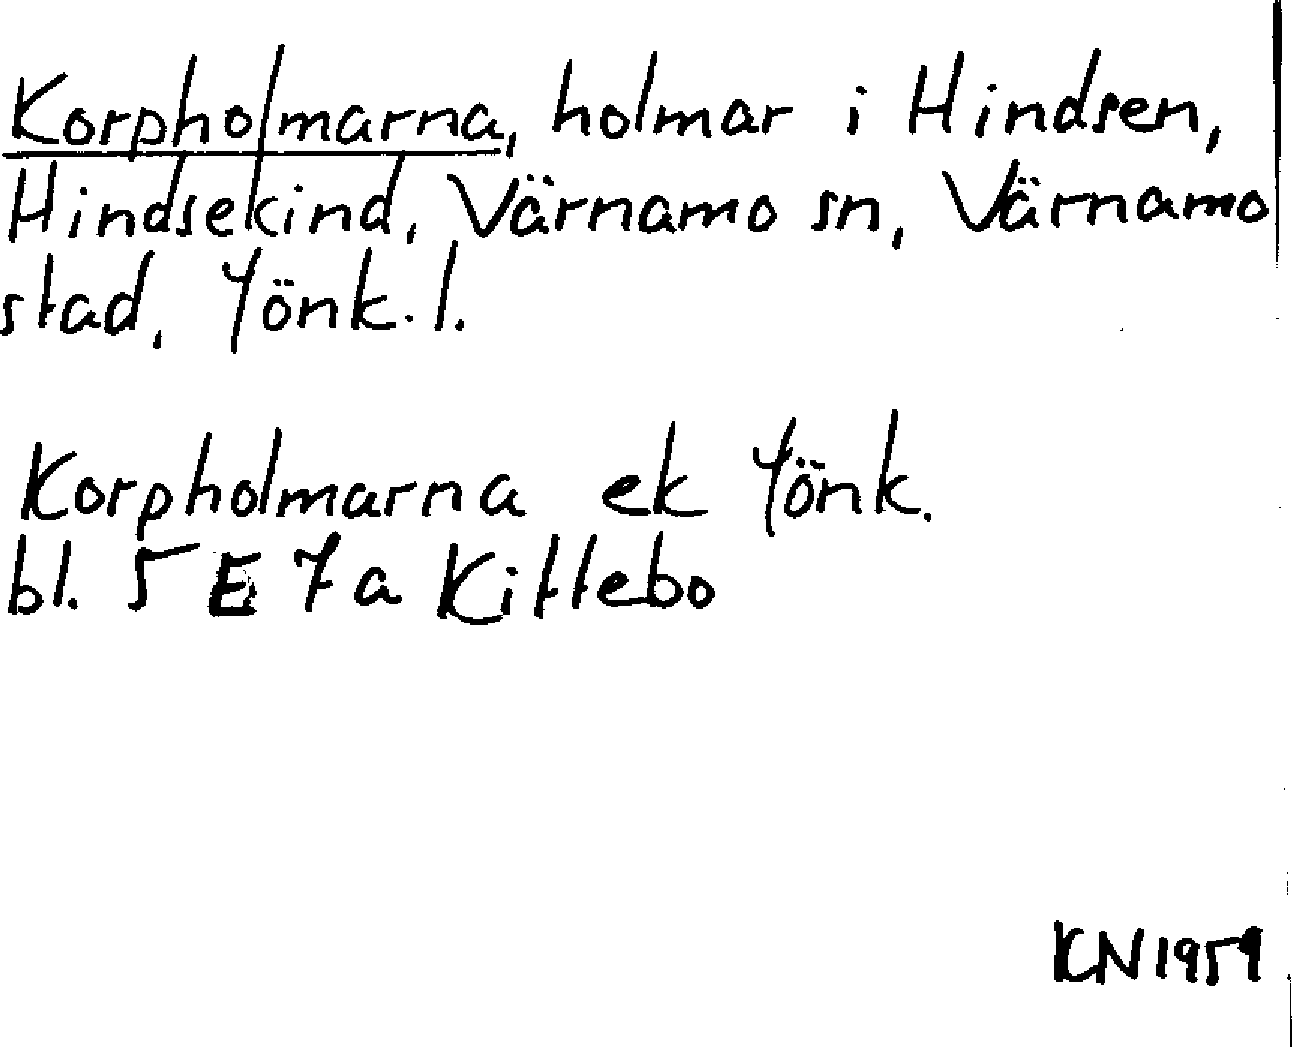 Korpholmarna, holmar i Hindsen,
Hindsekind, Värnamo sn, Värnamo
stad, Jönk. l.
Korpholmarna ek Jönk.
bl. 5 E 7 a Kittebo
KN 1959